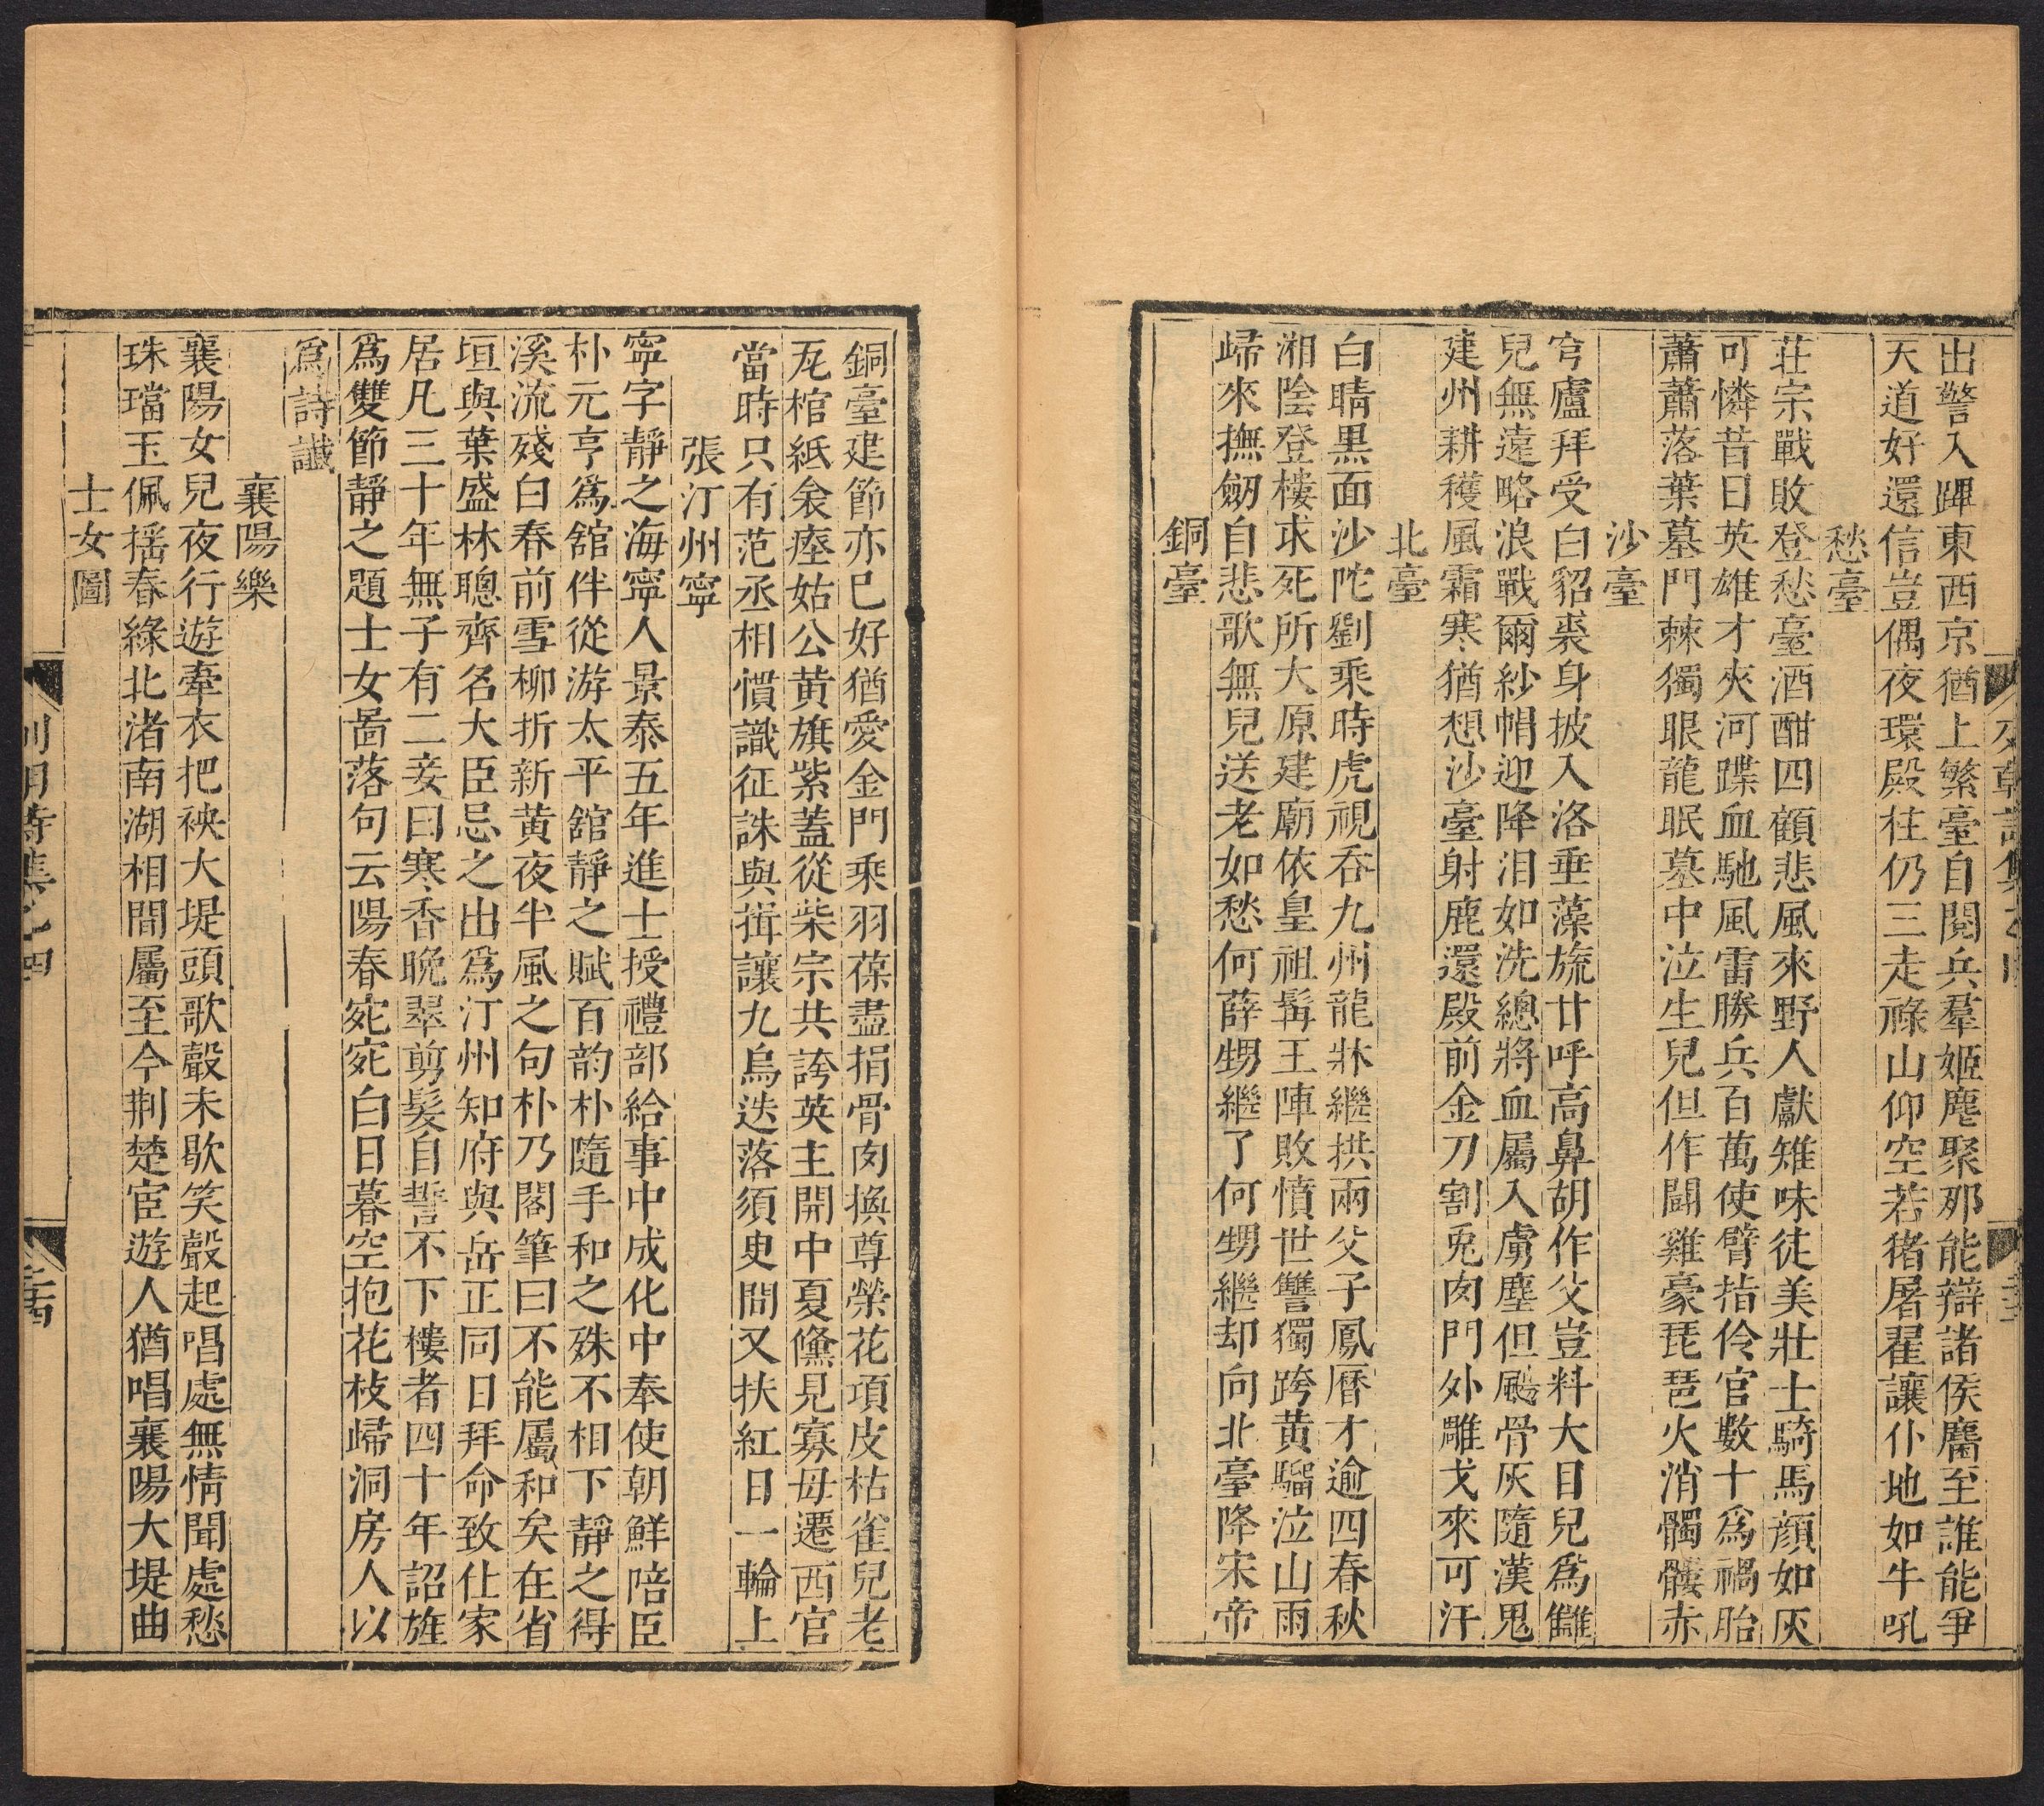 出警入蹕東西京猶上繁臺自閱兵羣姬麀聚那能辯諸侯麕至誰能爭
天道好還信豈偶夜環殿柱仍三走祿山仰空若猪屠翟讓仆地如牛吼
愁臺
莊宗戰敗登愁臺酒酣四顧悲風來野人獻雉味徒美壯士騎馬顔如灰
可憐昔日英雄才夾河蹀血馳風雷勝兵百萬使臂指伶官數十爲禍胎
蕭蕭落葉墓門棘獨眼龍眠墓中泣生兒但作鬬雞豪琵琶火消髑髏赤
沙臺
穹廬拜受白貂裘身披入洛垂藻旒廿呼高鼻胡作父豈料大目兒爲讎
兒無遠略浪戰爾紗帽迎降泪如洗總將血屬入虜塵但颺骨灰隨漢鬼
建州耕穫風霜寒猶想沙臺射鹿還殿前金刀割兎肉門外雕戈來可汗
北臺
白睛黒面沙陀劉乘時虎視吞九州龍牀繼拱兩父子鳳曆才逾四春秋
湘陰登樓求死所大原建廟依皇祖髯王陣敗憤世讐獨跨黄騮泣山雨
歸來撫劒自悲歌無兒送老如愁何薛甥繼了何甥繼却向北臺降宋帝
銅臺
銅臺建節亦已好猶愛金門乘羽葆盡捐骨肉換尊榮花項皮枯雀兒老
瓦棺紙衾瘞姑公黄旗紫蓋從柴宗共誇英主開中夏儵見寡母遷西官
當時只有范丞相慣識征誅與揖讓九烏迭落須臾間又扶紅日一輪上
張汀州寧
寧字靜之海寧人景泰五年進士授禮部給事中成化中奉使朝鮮陪臣
朴元亨爲舘伴從游太平舘靜之賦百韵朴隨手和之殊不相下靜之得
溪流殘白春前雪柳折新黄夜半風之句朴乃閣筆曰不能屬和矣在省
垣與葉盛林聰齊名大臣忌之出爲汀州知府與岳正同日拜命致仕家
居凡三十年無子有二妾曰寒香晩翠剪髮自誓不下樓者四十年詔旌
爲雙節靜之題士女啚落句云陽春宛宛白日暮空抱花枝歸洞房人以
爲詩讖
襄陽樂
襄陽女兒夜行遊牽衣把袂大堤頭歌聲未歇笑聲起唱處無情聞處愁
珠璫玉佩揺春綠北渚南湖相間屬至今荆楚宦遊人猶唱襄陽大堤曲
士女圖